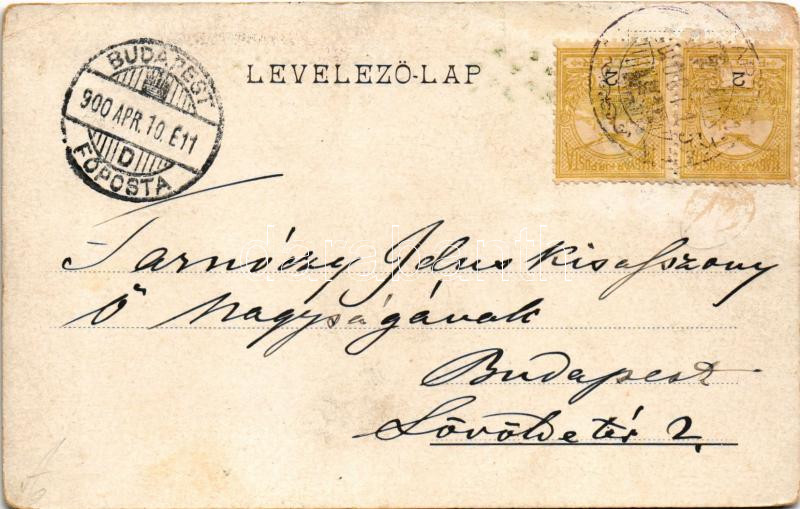 BUDAPEST
900 APR. 10. É11
D
FŐPOSTA
LEVELEZŐ-LAP
2
2
Tarnóczy Idus kisasszony
Ő Nagyságának
Budapest
Lövölde tér 2.